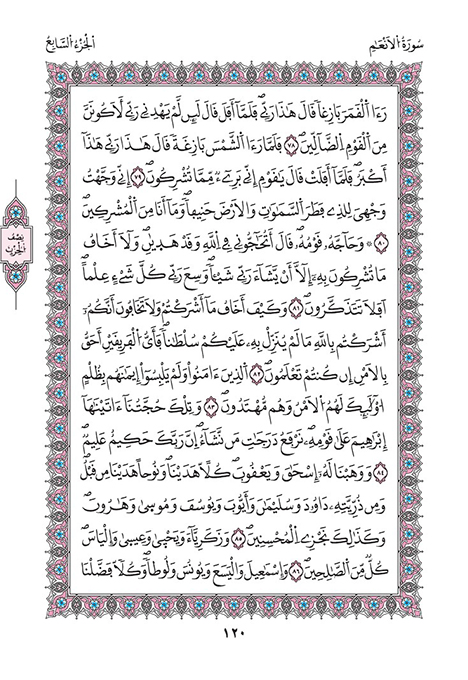 سُورَةُ الْأَنْعَامِ
الْجُزْءُ السَّابِعُ
رَءَا اَلْقَمَرَ بَازِغاً قَالَ هَٰذَا رَبِّےۖ فَلَمَّآ أَفَلَ قَالَ لَئِن لَّمْ يَهْدِنِے رَبِّے لَأَكُونَنَّ
مِنَ اَلْقَوْمِ اِلضَّآلِّينَۖ ٧٨ فَلَمَّا رَءَا اَلشَّمْسَ بَازِغَةً قَالَ هَٰذَا رَبِّے هَٰذَآ
أَكْبَرُۖ فَلَمَّآ أَفَلَتْ قَالَ يَٰقَوْمِ إِنِّے بَرِےٓءٌ مِّمَّا تُشْرِكُونَۖ ٧٩ إِنِّے وَجَّهْتُ
وَجْهِيَ لِلذِے فَطَرَ اَلسَّمَٰوَٰتِ وَالْأَرْضَ حَنِيفاًۖ وَمَآ أَنَا مِنَ اَلْمُشْرِكِينَۖ
٨٠ ۞ وَحَآجَّهُۥ قَوْمُهُۥۖ قَالَ أَتُحَٰٓجُّونِے فِے اِللَّهِ وَقَدْ هَدَيٰنِۖ وَلَآ أَخَافُ
مَا تُشْرِكُونَ بِهِۦٓ إِلَّآ أَنْ يَّشَآءَ رَبِّے شَيْـٔاًۖ وَسِعَ رَبِّے كُلَّ شَےْءٍ عِلْماًۖ
اَفَلَا تَتَذَكَّرُونَۖ ٨١ وَكَيْفَ أَخَافُ مَآ أَشْرَكْتُمْ وَلَا تَخَافُونَ أَنَّكُمُۥٓ
أَشْرَكْتُم بِاللَّهِ مَا لَمْ يُنَزِّلْ بِهِۦ عَلَيْكُمْ سُلْطَٰناًۖ فَأَيُّ اُلْفَرِيقَيْنِ أَحَقُّ
بِالَامْنِ إِن كُنتُمْ تَعْلَمُونَۖ ٨٢ اَلذِينَ ءَامَنُواْ وَلَمْ يَلْبِسُوٓاْ إِيمَٰنَهُم بِظُلْمٍ
اُوْلَٰٓئِكَ لَهُمُ اُلَامْنُ وَهُم مُّهْتَدُونَۖ ٨٣ وَتِلْكَ حُجَّتُنَآ ءَاتَيْنَٰهَآ
إِبْرَٰهِيمَ عَلَيٰ قَوْمِهِۦۖ نَرْفَعُ دَرَجَٰتِ مَن نَّشَآءُۖ إِنَّ رَبَّكَ حَكِيمٌ عَلِيمٌۖ
٨٤ وَوَهَبْنَا لَهُۥٓ إِسْحَٰقَ وَيَعْقُوبَۖ كُلّاً هَدَيْنَاۖ وَنُوحاً هَدَيْنَا مِن قَبْلُۖ
وَمِن ذُرِّيَّتِهِۦ دَاوُۥدَ وَسُلَيْمَٰنَ وَأَيُّوبَ وَيُوسُفَ وَمُوسَيٰ وَهَٰرُونَۖ
وَكَذَٰلِكَ نَجْزِے اِلْمُحْسِنِينَۖ ٨٥ وَزَكَرِيَّآءَ وَيَحْيَيٰ وَعِيسَيٰ وَإِلْيَاسَۖ
كُلٌّ مِّنَ اَلصَّٰلِحِينَۖ ٨٦ وَإِسْمَٰعِيلَ وَالْيَسَعَ وَيُونُسَ وَلُوطاًۖ وَكُلّاً فَضَّلْنَا
نِصْفُ
الْحِزْبِ
١٢٠